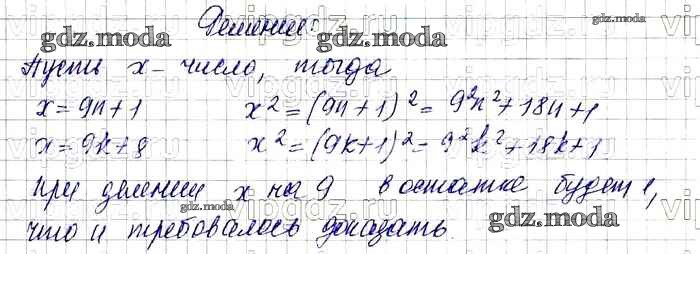 Решение:
Пусть x - число, тогда
x = 9n + 1 x² = (9n + 1)² = 9²n² + 18n + 1
x = 9k + 8 x² = (9k + 1)² = 9²k² + 18k + 1
При делении x на 9 в остатке будет 1,
что и требовалось доказать.
gdz.moda
gdz.moda
gdz.moda
gdz.moda
gdz.moda